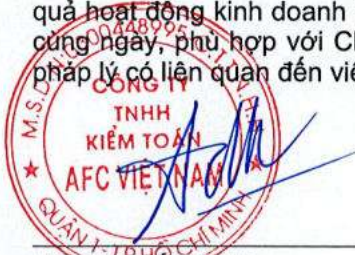 quả hoạt động kinh doanh
cùng ngày, phù hợp với
pháp lý có liên quan đến
CÔNG TY
TNHH
KIỂM TOÁN
AFC VIỆT NAM
QUẬN 1 - TP HỒ CHÍ MINH